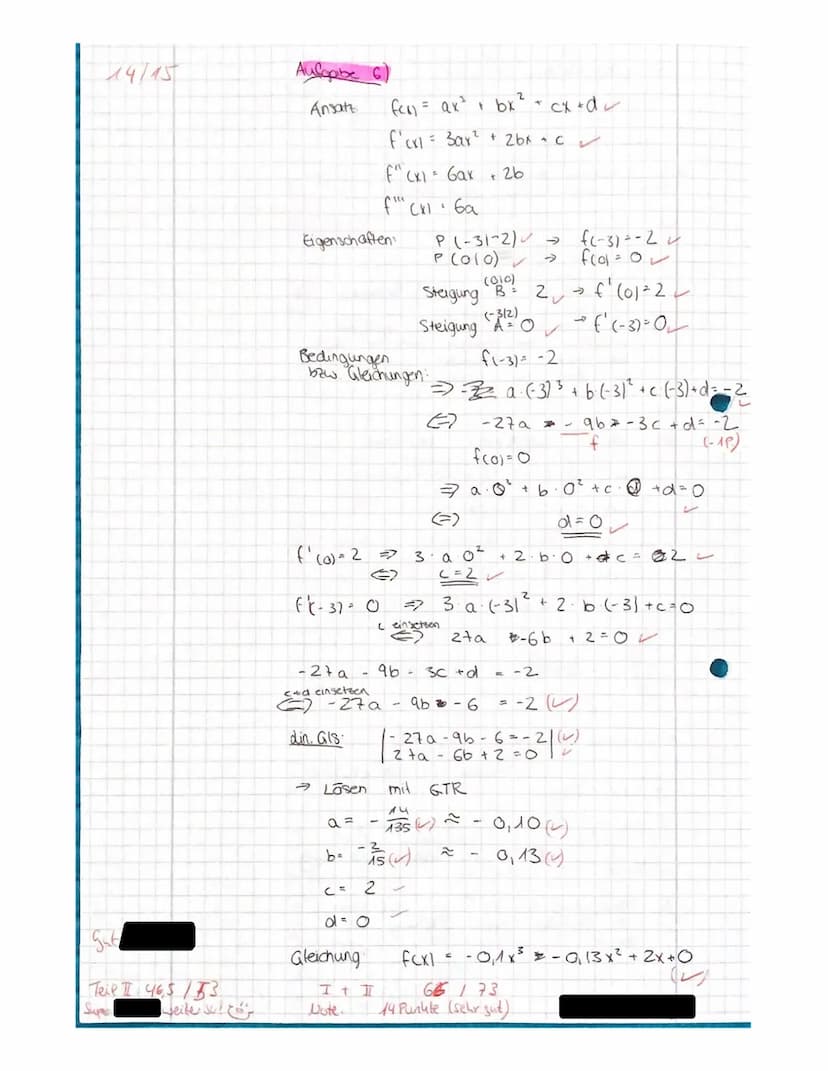 14/15
Aufgabe 6)
Ansatz f(x) = ax³ + bx² + cx + d ✓
f'(x) = 3ax² + 2bx + c ✓
f''(x) = 6ax + 2b
f'''(x) = 6a
Eigenschaften: P(-3|-2) ✓ → f(-3) = -2 ✓
P(0|0) ✓ → f(0) = 0 ✓
(0|0)
Steigung B = 2 ✓ → f'(0) = 2 ✓
(-3|2)
Steigung A = 0 ✓ → f'(-3) = 0 ✓
Bedingungen f(-3) = -2
bzw. Gleichungen:
⇒ a·(-3)³ + b·(-3)² + c·(-3) + d = -2 ✓
⇔ -27a - 9b - 3c + d = -2
f (-1P)
f(0) = 0
⇒ a·0³ + b·0² + c·0 + d = 0 ✓
⇔ d = 0 ✓
f'(0) = 2 ⇒ 3·a 0² + 2·b·0 + c = 2 ✓
⇔ c = 2 ✓
f'(-3) = 0 ⇒ 3·a·(-3)² + 2·b(-3) + c = 0
c einsetzen
⇔ 27a - 6b + 2 = 0 ✓
-27a - 9b - 3c + d = -2
c+d einsetzen
⇔ -27a - 9b - 6 = -2 (✓)
lin. Gls: |-27a - 9b - 6 = -2| (✓)
|27a - 6b + 2 = 0| ✓
→ Lösen mit GTR
a = -14/135 (✓) ≈ -0,10 (✓)
b = -2/15 (✓) ≈ -0,13 (✓)
c = 2 ✓
d = 0 ✓
Gleichung f(x) = -0,1x³ - 0,13x² + 2x + 0
(✓)
Gut
Teil II: 46,5 / 53 I + II 66 / 73
Super weiter so! Note: 14 Punkte (sehr gut)